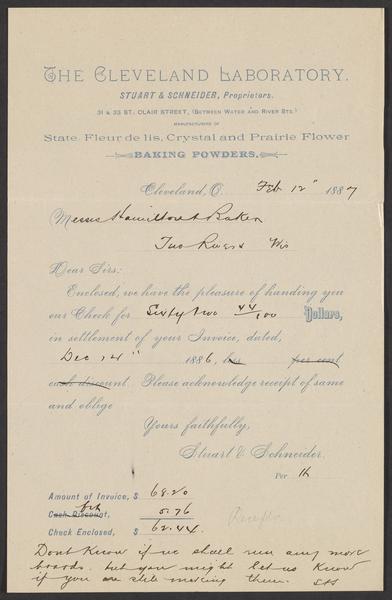 THE CLEVELAND LABORATORY.
STUART & SCHNEIDER, Proprietors.
31 & 33 ST. CLAIR STREET, (BETWEEN WATER AND RIVER STS.)
MANUFACTURERS OF
State, Fleur de lis, Crystal and Prairie Flower
BAKING POWDERS.
Cleveland, O. Feb 12" 1887
Messrs Hamilton & Baker
Two Rivers Wis
Dear Sirs:
Enclosed, we have the pleasure of handing you
our Check for Sixty two 44/100 Dollars,
in settlement of your Invoice, dated,
Dec 14" 1886, less per cent
cash discount. Please acknowledge receipt of same
and oblige
Yours faithfully,
Stuart & Schneider.
Per
Amount of Invoice, $ 68.20
frt
Cash Discount, 5.76
Check Enclosed, $ 62.44.
Dont Know if we shall run any more
boards. but you might let us Know
if you are still making them. S&S